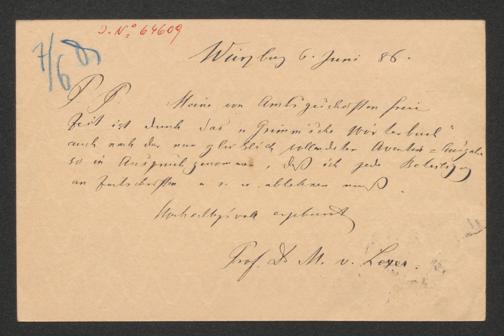 J. Nº 64609
7/6 8
Würzburg 6. Juni 86.
P. P. Meine von Amtsgeschäften freie
Zeit ist durch das „Grimm'sche Wörterbuch“
auch nach der nun glücklich vollendeten Aventin-Ausgabe
so in Anspruch genommen, daß ich jede Beteiligung
an Zeitschriften u. s. w. ablehnen muß.
Hochachtungsvoll ergebenst
Prof. Dr M. v. Lexer.